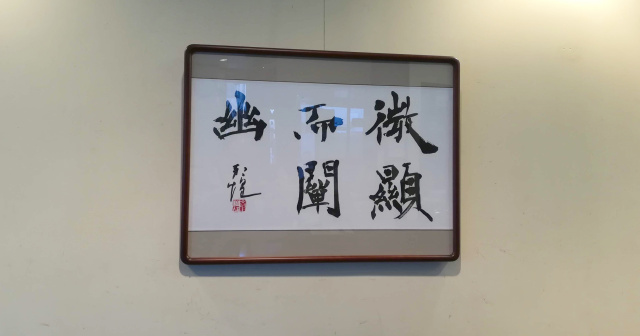 微顯
而闡
幽